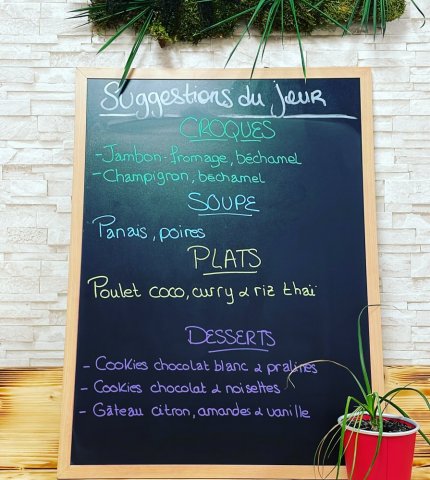 Suggestions du jour
CROQUES
- Jambon-fromage, béchamel
- Champignon, bechamel
SOUPE
Panais, poires
PLATS
Poulet coco, curry & riz thaï
DESSERTS
- Cookies chocolat blanc & pralines
- Cookies chocolat & noisettes
- Gâteau citron, amandes & vanille